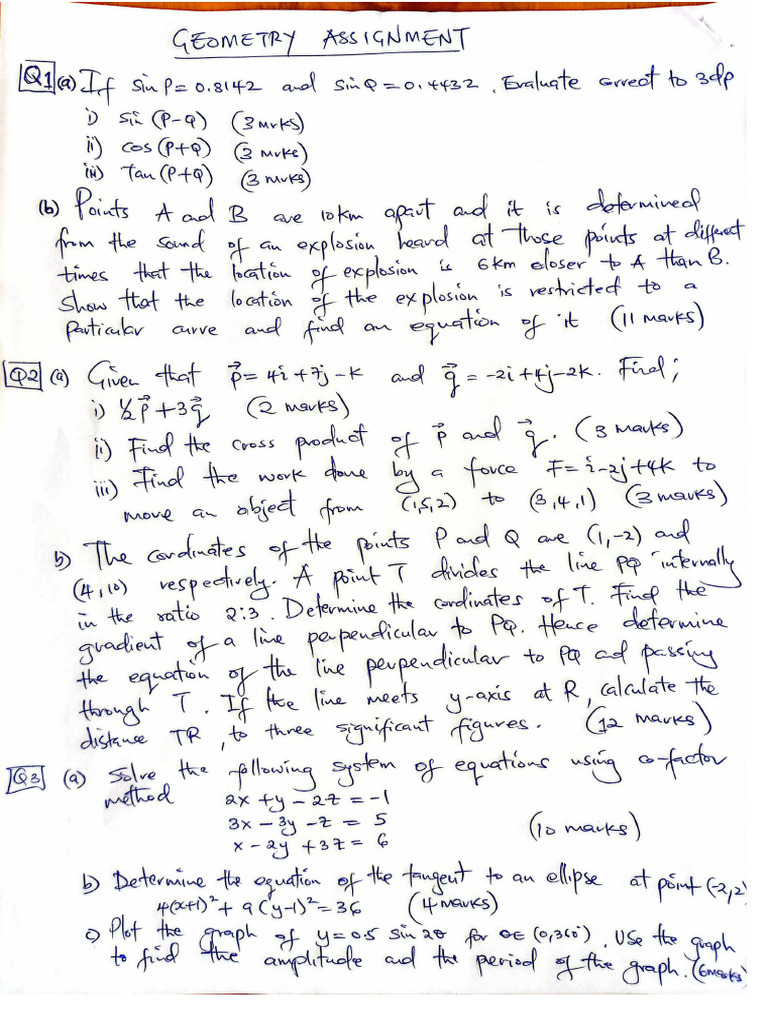 GEOMETRY ASSIGNMENT
Q1 (a) If sin P = 0.8142 and sin Q = 0.4432, Evaluate correct to 3dp
i) sin (P-Q) (3 mrks)
ii) cos (P+Q) (3 mrks)
iii) Tan (P+Q) (3 mrks)
(b) Points A and B are 10km apart and it is determined
from the sound of an explosion heard at those points at different
times that the location of explosion is 6km closer to A than B.
Show that the location of the explosion is restricted to a
Particular curve and find an equation of it (11 marks)
Q2 (a) Given that p⃗ = 4i + 7j - k and q⃗ = -2i + 4j - 2k. Find;
i) ½p⃗ + 3q⃗ (2 marks)
ii) Find the cross product of p⃗ and q⃗. (3 marks)
iii) Find the work done by a force F = i - 2j + 4k to
move an object from (1,5,2) to (3,4,1) (3 marks)
b) The cordinates of the points P and Q are (1,-2) and
(4,10) respectively. A point T divides the line PQ internally
in the ratio 2:3. Determine the cordinates of T. Find the
gradient of a line perpendicular to PQ. Hence determine
the equation of the line perpendicular to PQ ad passing
through T. If the line meets y-axis at R, calculate the
distance TR, to three significant figures. (12 marks)
Q3 (a) Solve the following system of equations using co-factor
method 2x + y - 2z = -1
3x - 3y - z = 5
x - 2y + 3z = 6 (10 marks)
b) Determine the equation of the tangent to an ellipse at point (-2,2)
4(x+1)² + 9(y-1)² = 36 (4 marks)
c) Plot the graph of y = 0.5 sin 2θ for θ∈ (0,360°). Use the graph
to find the amplitude and the period of the graph. (6 marks)